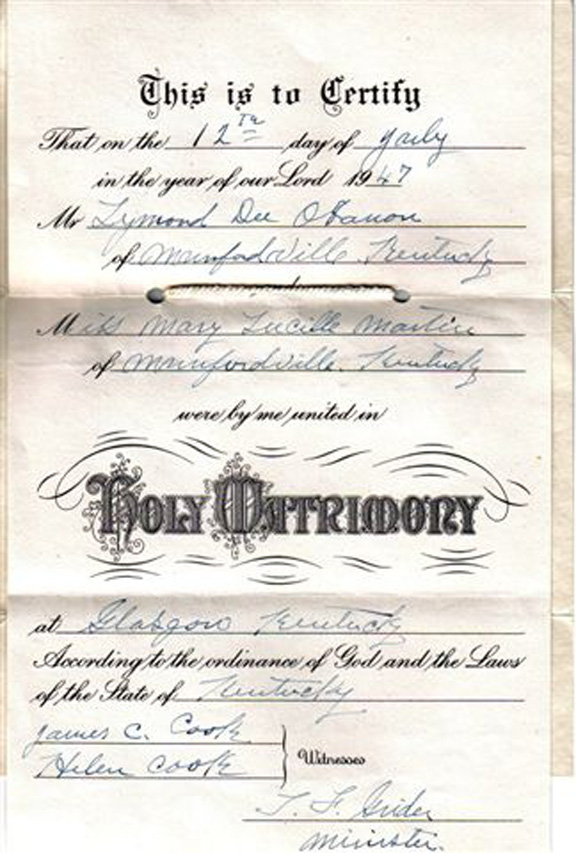 This is to Certify
That on the 12th day of July
in the year of our Lord 1947
Mr Lymond Dee Obanon
of Munfordville Kentucky
Miss Mary Lucille Martin
of Munfordville Kentucky
were by me united in
HOLY MATRIMONY
at Glasgow Kentucky
According to the ordinance of God and the Laws
of the State of Kentucky
James C. Cook
Helen Cook
Witnesses
T. F. Grider
Minister.